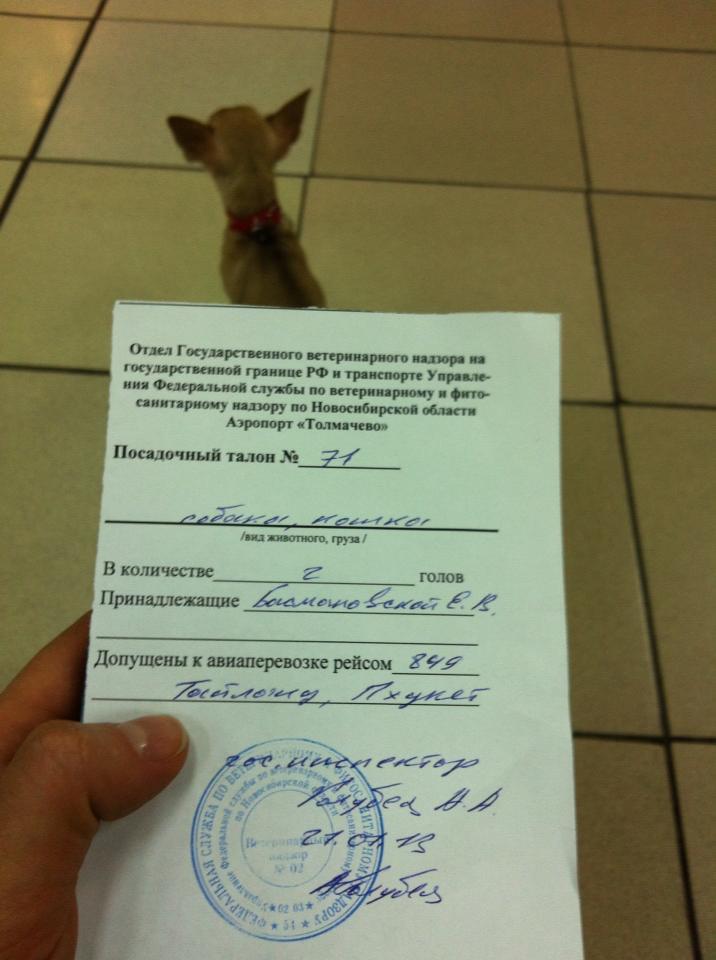 Отдел Государственного ветеринарного надзора на
государственной границе РФ и транспорте Управле-
ния Федеральной службы по ветеринарному и фито-
санитарному надзору по Новосибирской области
Аэропорт «Толмачево»
Посадочный талон № 71
собака, кошка
/вид животного, груза /
В количестве 2 голов
Принадлежащие Басмановской Е. В.
Допущены к авиаперевозке рейсом 849
Тайланд, Пхукет
гос. инспектор
Голубец Н. А
27.01.13
ФЕДЕРАЛЬНАЯ СЛУЖБА ПО ВЕТЕРИНАРНОМУ И ФИТОСАНИТАРНОМУ НАДЗОРУ ★ 54 ★
Управление Федеральной службы по ветеринарному и фитосанитарному
по Новосибирской области
Ветеринарный
надзор
№ 02
★02 03★